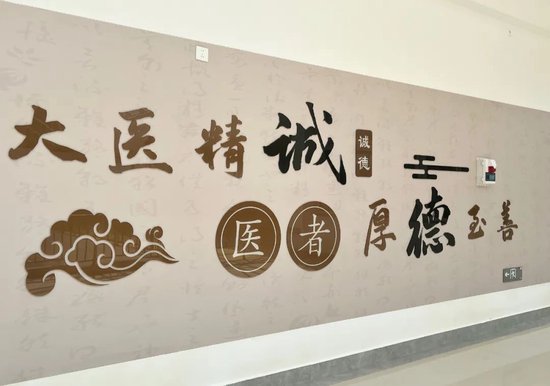 大医精诚
诚德
医者厚德至善